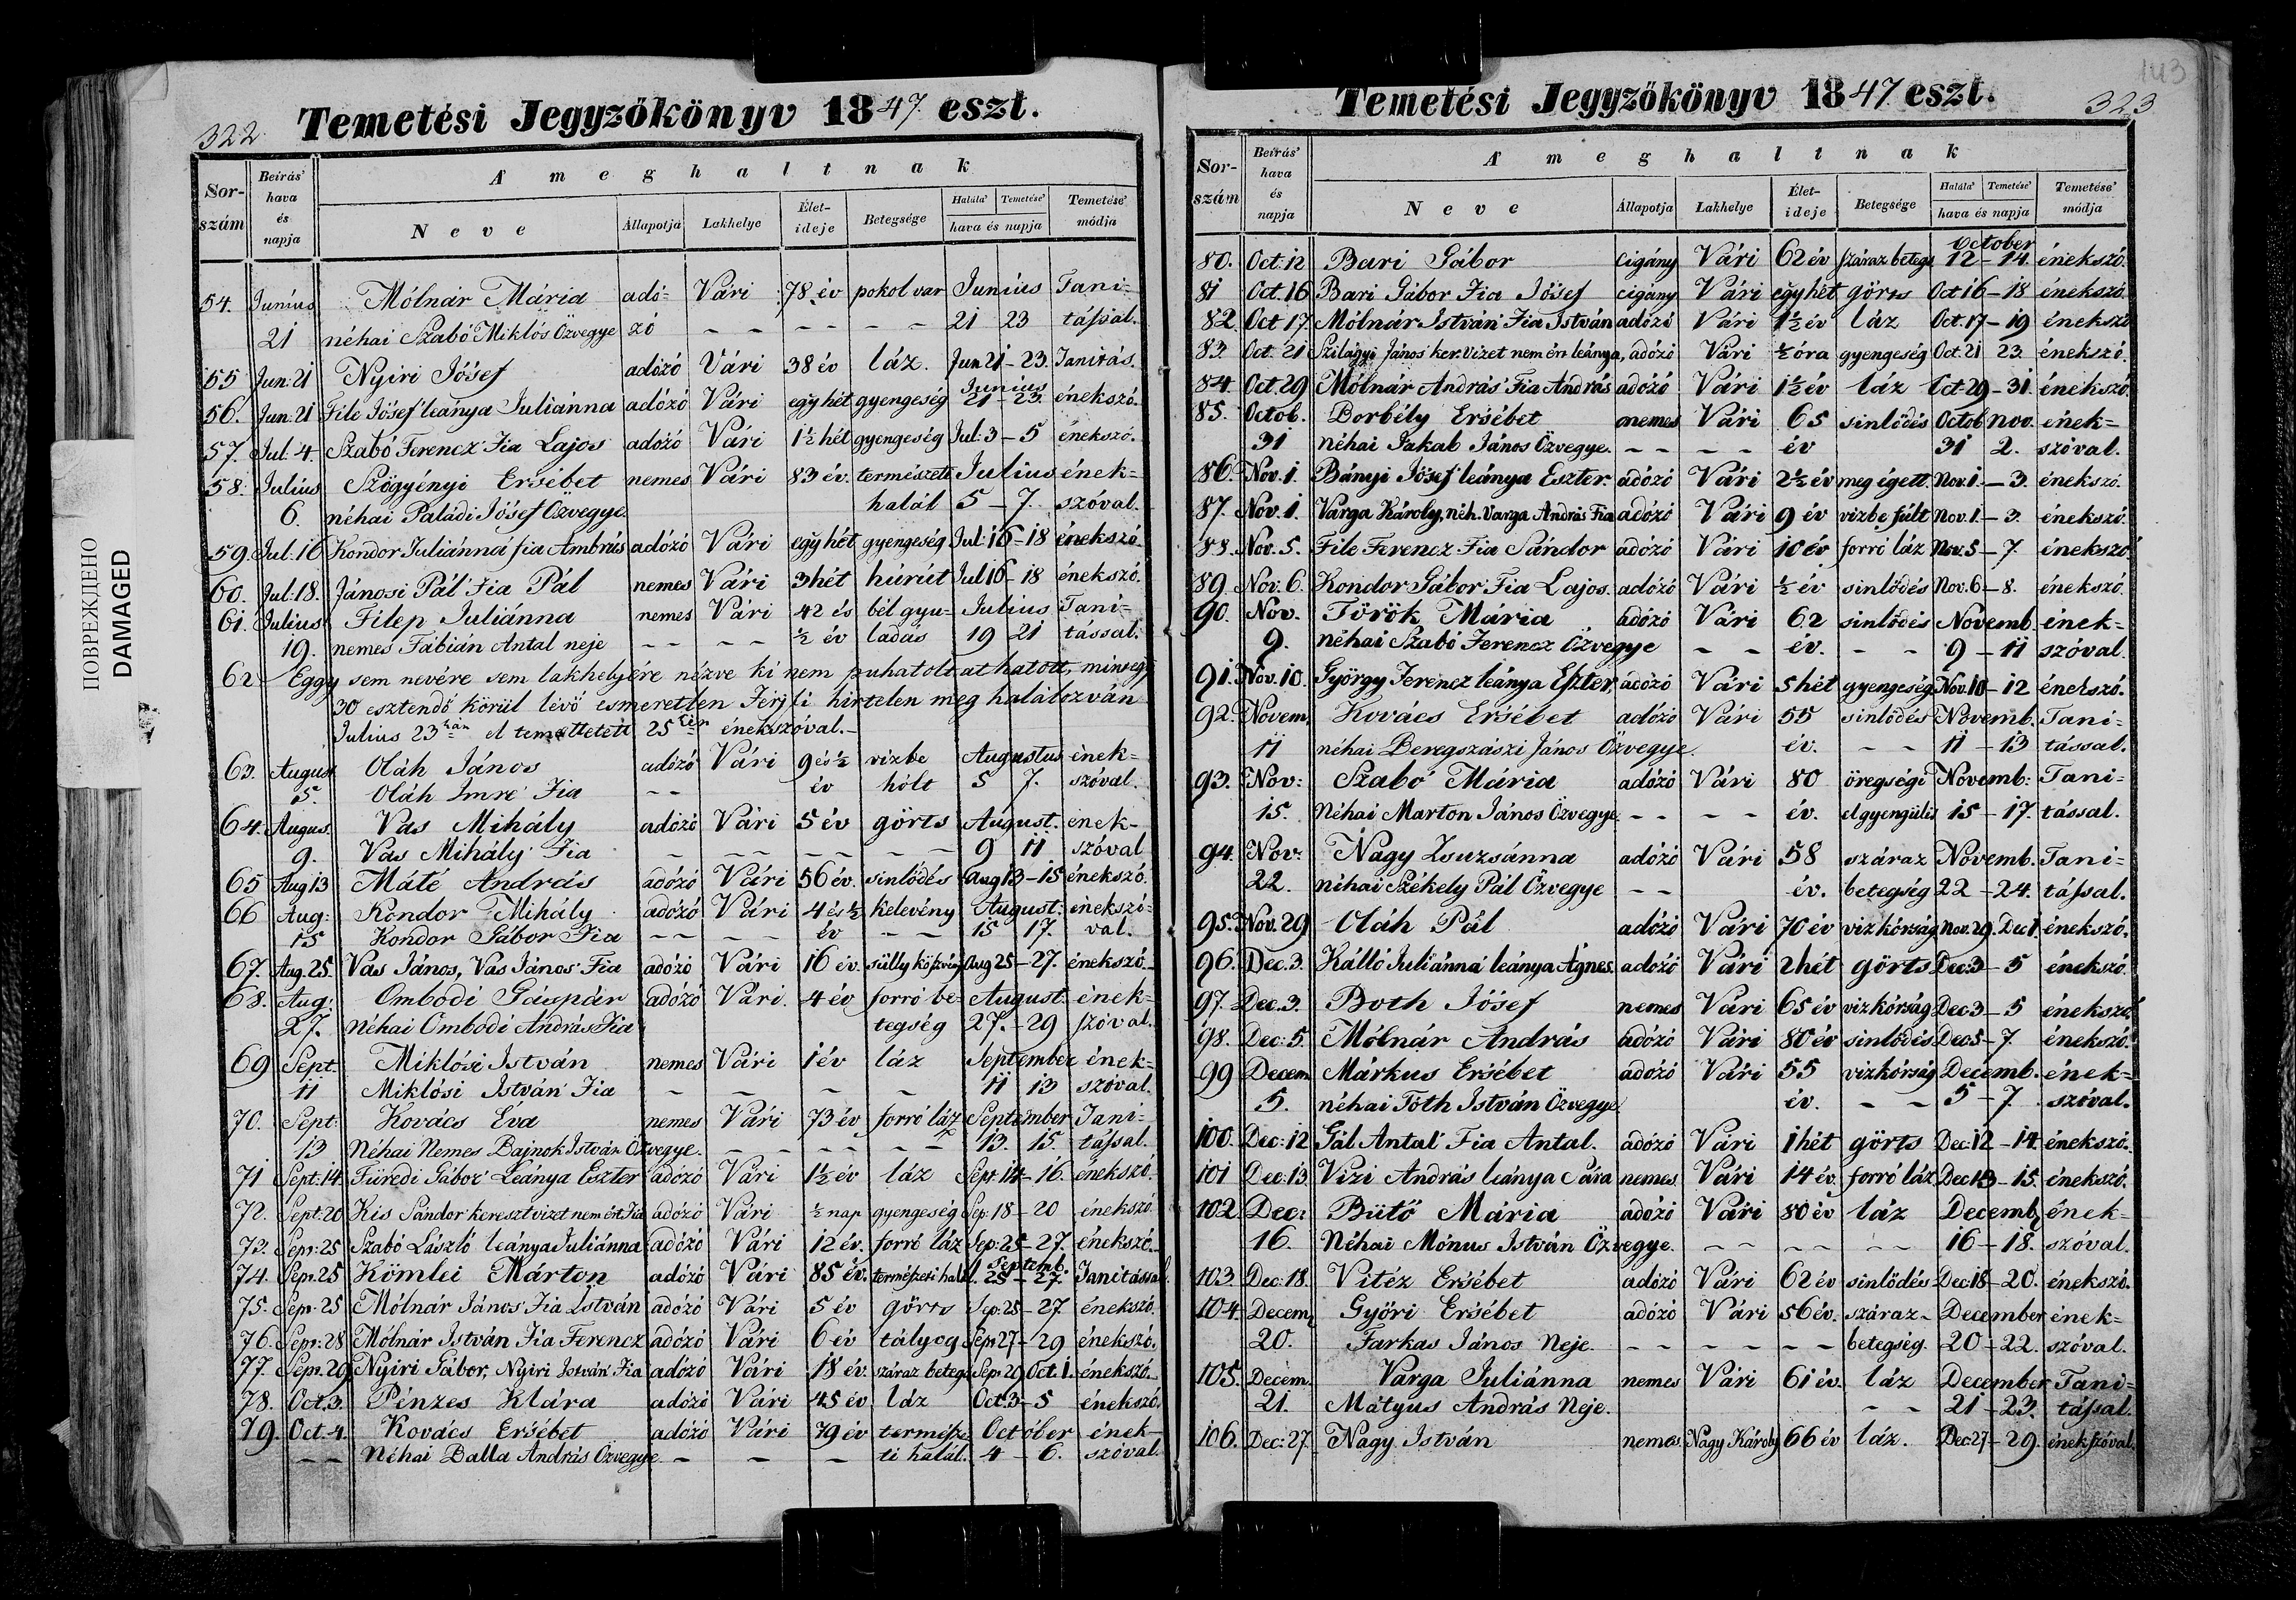 ПОВРЕЖДЕНО
DAMAGED
322.
Temetési Jegyzőkönyv 1847. eszt.
Sorszám Beirás' hava és napja A' meghaltnak
Neve Állapotja Lakhelye Életideje Betegsége Halála' Temetése' hava és napja Temetése' módja
54. Junius Mólnár Mária adó= Vári 78. év pokol var Junius Tani=
21 néhai Szabó Miklós Özvegye zó – – – – – – 21 23 táſsal.
55 Jun: 21 Nyiri Jósef adózó Vári 38 év láz. Jun 21 – 23. Tanitás.
56. Jun: 21 File Jósef leánya Juliánna adózó Vári egy hét gyengeség Junius 21 – 23. énekszó.
57. Jul: 4. Szabó Ferencz Fia Lajos adózó Vári 1½ hét gyengeség Jul: 3 – 5 énekszó.
58. Julius Szögyényi Ersébet nemes Vári 83 év. természeti Julius ének=
6. néhai Paládi Jósef Özvegye halál 5 – 7. szóval.
59. Jul: 16 Kondor Juliánná fia Ambrús adózó Vári egy hét gyengeség Jul: 16 – 18 énekszó.
60. Jul: 18. Jánosi Pál Fia Pál nemes Vári 3 hét húrút Jul 16 – 18 énekszó.
61. Julius Filep Juliánna nemes Vári 42 és bél gyu- Julius Tani=
19. nemes Fábián Antal neje – – – – ½ év ladás 19 21 tással.
62 Eggy sem nevére sem lakhelyére nézve ki nem puhatoltathatott, mintegy
30 esztendő körül lévő esmeretlen Férjfi hirtelen meg halálozván
Julius 23kán el temettetett 25kén énekszóval.
63. August Oláh János adózó Vári 9 és ½ vizbe Augustus ének=
5. Oláh Imre Fia – – év hólt 5 7. szóval.
64. Augus. Vas Mihály adózó Vári 5 év görts August. ének-
9. Vas Mihály Fia – – – – – – – 9 11 szóval
65 Aug 13 Máté András adózó Vári 56 év. sinlődés Aug 13 – 15 énekszó.
66 Aug: Kondor Mihály adózó Vári 4 és ½ kelevény August: énekszó=
15 Kondor Gábor Fia – – – – év – – 15 17. val.
67. Aug. 25. Vas János, Vas János Fia adózó Vári 16 év. Aug 25 – 27. énekszó.
68. Aug: Ombodi Gáspár adózó Vári. 4 év forró be- August ének=
27. néhai Ombodi András Fia tegség 27. – 29 ſzóval.
69 Sept. Miklósi István nemes Vári 1 év láz September ének=
11 Miklósi István Fia – – – – 11 13 szóval.
70. Sept: Kovács Éva nemes Vári 73 év forró láz September Tani=
13 Néhai Nemes Bajnok István Özvegye. – – – – – – 13. 15. táſsal.
71 Sept: 14 Füredi Gábor Leánya Eszter adózó Vári 1½ év láz Sept: 14 – 16. énekszó.
72. Sept: 20 Kis Sándor keresztvizet nem ért Fia adózó Vári ½ nap gyengeség Sep: 18 – 20 énekszó.
73. Sepr: 25 Szabó László leánya Juliánna adózó Vári 12 év. forró láz Sep: 25 – 27. énekszó.
74. Sepr. 25 Kömlei Márton adózó Vári 85 év. természeti halál. Septemb. 25 – 27. Tanitással.
75. Sepr: 25 Mólnár János Fia István adózó Vári 5 év görts Sep: 25 – 27 énekszó.
76. Sepr: 28 Mólnár István Fia Ferencz adózó Vári 6 év tályog Sepr 27 – 29 énekszó.
77. Sepr. 29 Nyiri Gábor, Nyiri István Fia adózó Vári 18 év. száraz beteg Sepr 29 Oct. 1. énekszó.
78. Oct. 3. Pénzes Klára adózó Vári 45 év láz Oct: 3 – 5 énekszó.
79. Oct. 4. Kovács Ersébet adózó Vári 79 év természe October ének-
– – Néhai Balla András Özvegye – – – ti halál. 4 – 6. szóval.
143
323
Temetési Jegyzőkönyv 1847 eszt.
Sorszám Beirás' hava és napja A' meghaltnak
Neve Állapotja Lakhelye Életideje Betegsége Halála' Temetése' hava és napja Temetése' módja
80. Oct: 12 Bari Gábor cigány Vári 62 év száraz betegs October 12 – 14. énekszó.
81 Oct. 16 Bari Gábor Fia Jósef cigány Vári egy hét görts Oct 16 – 18 énekszó.
82. Oct 17 Mólnár István Fia István adózó Vári 1½ év láz Oct. 17 – 19 énekszó
83. Oct. 21 Szilágyi János ker. vizet nem ért leánya, adózó Vári ½ óra gyengeség Oct. 21 23. énekszó.
84. Oct. 29 Mólnár András Fia András adózó Vári 1½ év láz Oct. 29 – 31. énekszó.
85. Octob. Borbély Ersébet nemes Vári 65 sinlődés Octob nov. ének=
31 néhai Jakab János Özvegye. – – – – év 31 2. szóval.
86. Nov. 1. Bányi Jósef leánya Eszter. adózó Vári 2½ év meg égett. Nov. 1. – 3. énekszó.
87. Nov. 1. Varga Károly, néh. Varga András Fia adózó Vári 9 év vizbe fúlt Nov. 1. – 3. énekszó.
88. Nov. 5. File Ferencz Fia Sándor adózó Vári 10 év forró láz Nov. 5 – 7. énekszó.
89. Nov. 6. Kondor Gábor Fia Lajos. adózó Vári ½ év sinlődés Nov. 6 – 8. énekszó.
90. Nov. Török Mária adózó Vári 62 sinlődés Novemb. ének=
9. néhai Szabó Ferencz Özvegye – – év. – – 9 – 11 szóval.
91. Nov. 10. György Ferencz leánya Eſzter adózó Vári 5 hét gyengeség Nov. 10 – 12 énekszó.
92. Novem. Kovács Ersébet adózó Vári 55 sinlődés Novemb. Tani=
11 néhai Beregszászi János Özvegye. év. – – 11 – 13 tással.
93. Nov: Szabó Mária adózó Vári 80 öregségi Novemb: Tani=
15. Néhai Marton János Özvegye. – – – – év. elgyengülés 15 – 17. tással.
94. Nov: Nagy Zsuzsánna adózó Vári 58 száraz Novemb. Tani=
22. néhai Székely Pál Özvegye – – év. betegség 22 – 24. táſsal.
95. Nov. 29 Oláh Pál adózó Vári 70 év vizkórság Nov. 29. Dec 1. énekszó.
96. Dec. 3. Kálló Juliánná leánya Ágnes. adózó Vári 2 hét görts Dec: 3 – 5 énekszó.
97. Dec. 3. Both Jósef nemes Vári 65 év vizkórság Dec 3 – 5 énekszó.
98. Dec: 5. Mólnár András adózó Vári 80 év sinlődés Dec 5 – 7. énekszó.
99 Decem Márkus Ersébet adózó Vári 55 vizkórság Decemb. ének=
5. néhai Tóth István Özvegye. év. – – 5 – 7. szóval.
100. Dec: 12 Gál Antal Fia Antal. adózó Vári 1 hét görts Dec: 12 – 14. énekszó.
101 Dec: 13. Vizi András leánya Sára nemes. Vári 14 év. forró láz Dec 13 – 15. énekszó.
102. Dec: Bütő Mária adózó Vári 80 év láz Decemb. ének=
16. Néhai Mónus István Özvegye. – – – – – – 16 – 18. szóval.
103. Dec: 18. Vitéz Ersébet adózó Vári 62 év sinlődés Dec: 18 – 20. énekszó.
104. Decem Győri Ersébet adózó Vári 56 év. száraz- December ének=
20. Farkas János Neje. – – – – – – betegség. 20 – 22. szóval.
105. Decem. Varga Juliánna nemes Vári 61 év. láz December Tani=
21. Mátyus András Neje. – – 21 – 23. táſsal.
106. Dec: 27 Nagy István nemes. Nagy Károly 66 év láz. Dec: 27 – 29. énekszóval.